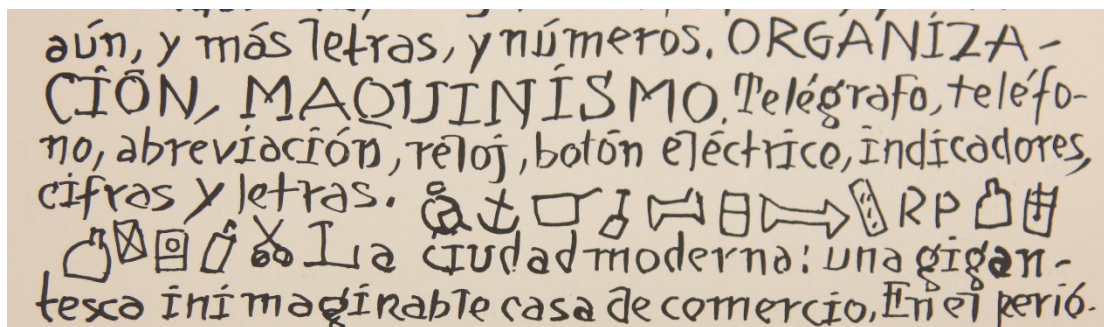 aún, y más letras, y números. ORGANÍZA-
CÍÓN, MAQUINÍSMO. Telégrafo, teléfo-
no, abreviación, reloj, botón eléctrico, indicadores,
cifras y letras. RP
La ciudad moderna: una gigan-
tesca inimaginable casa de comercio. En el perió-